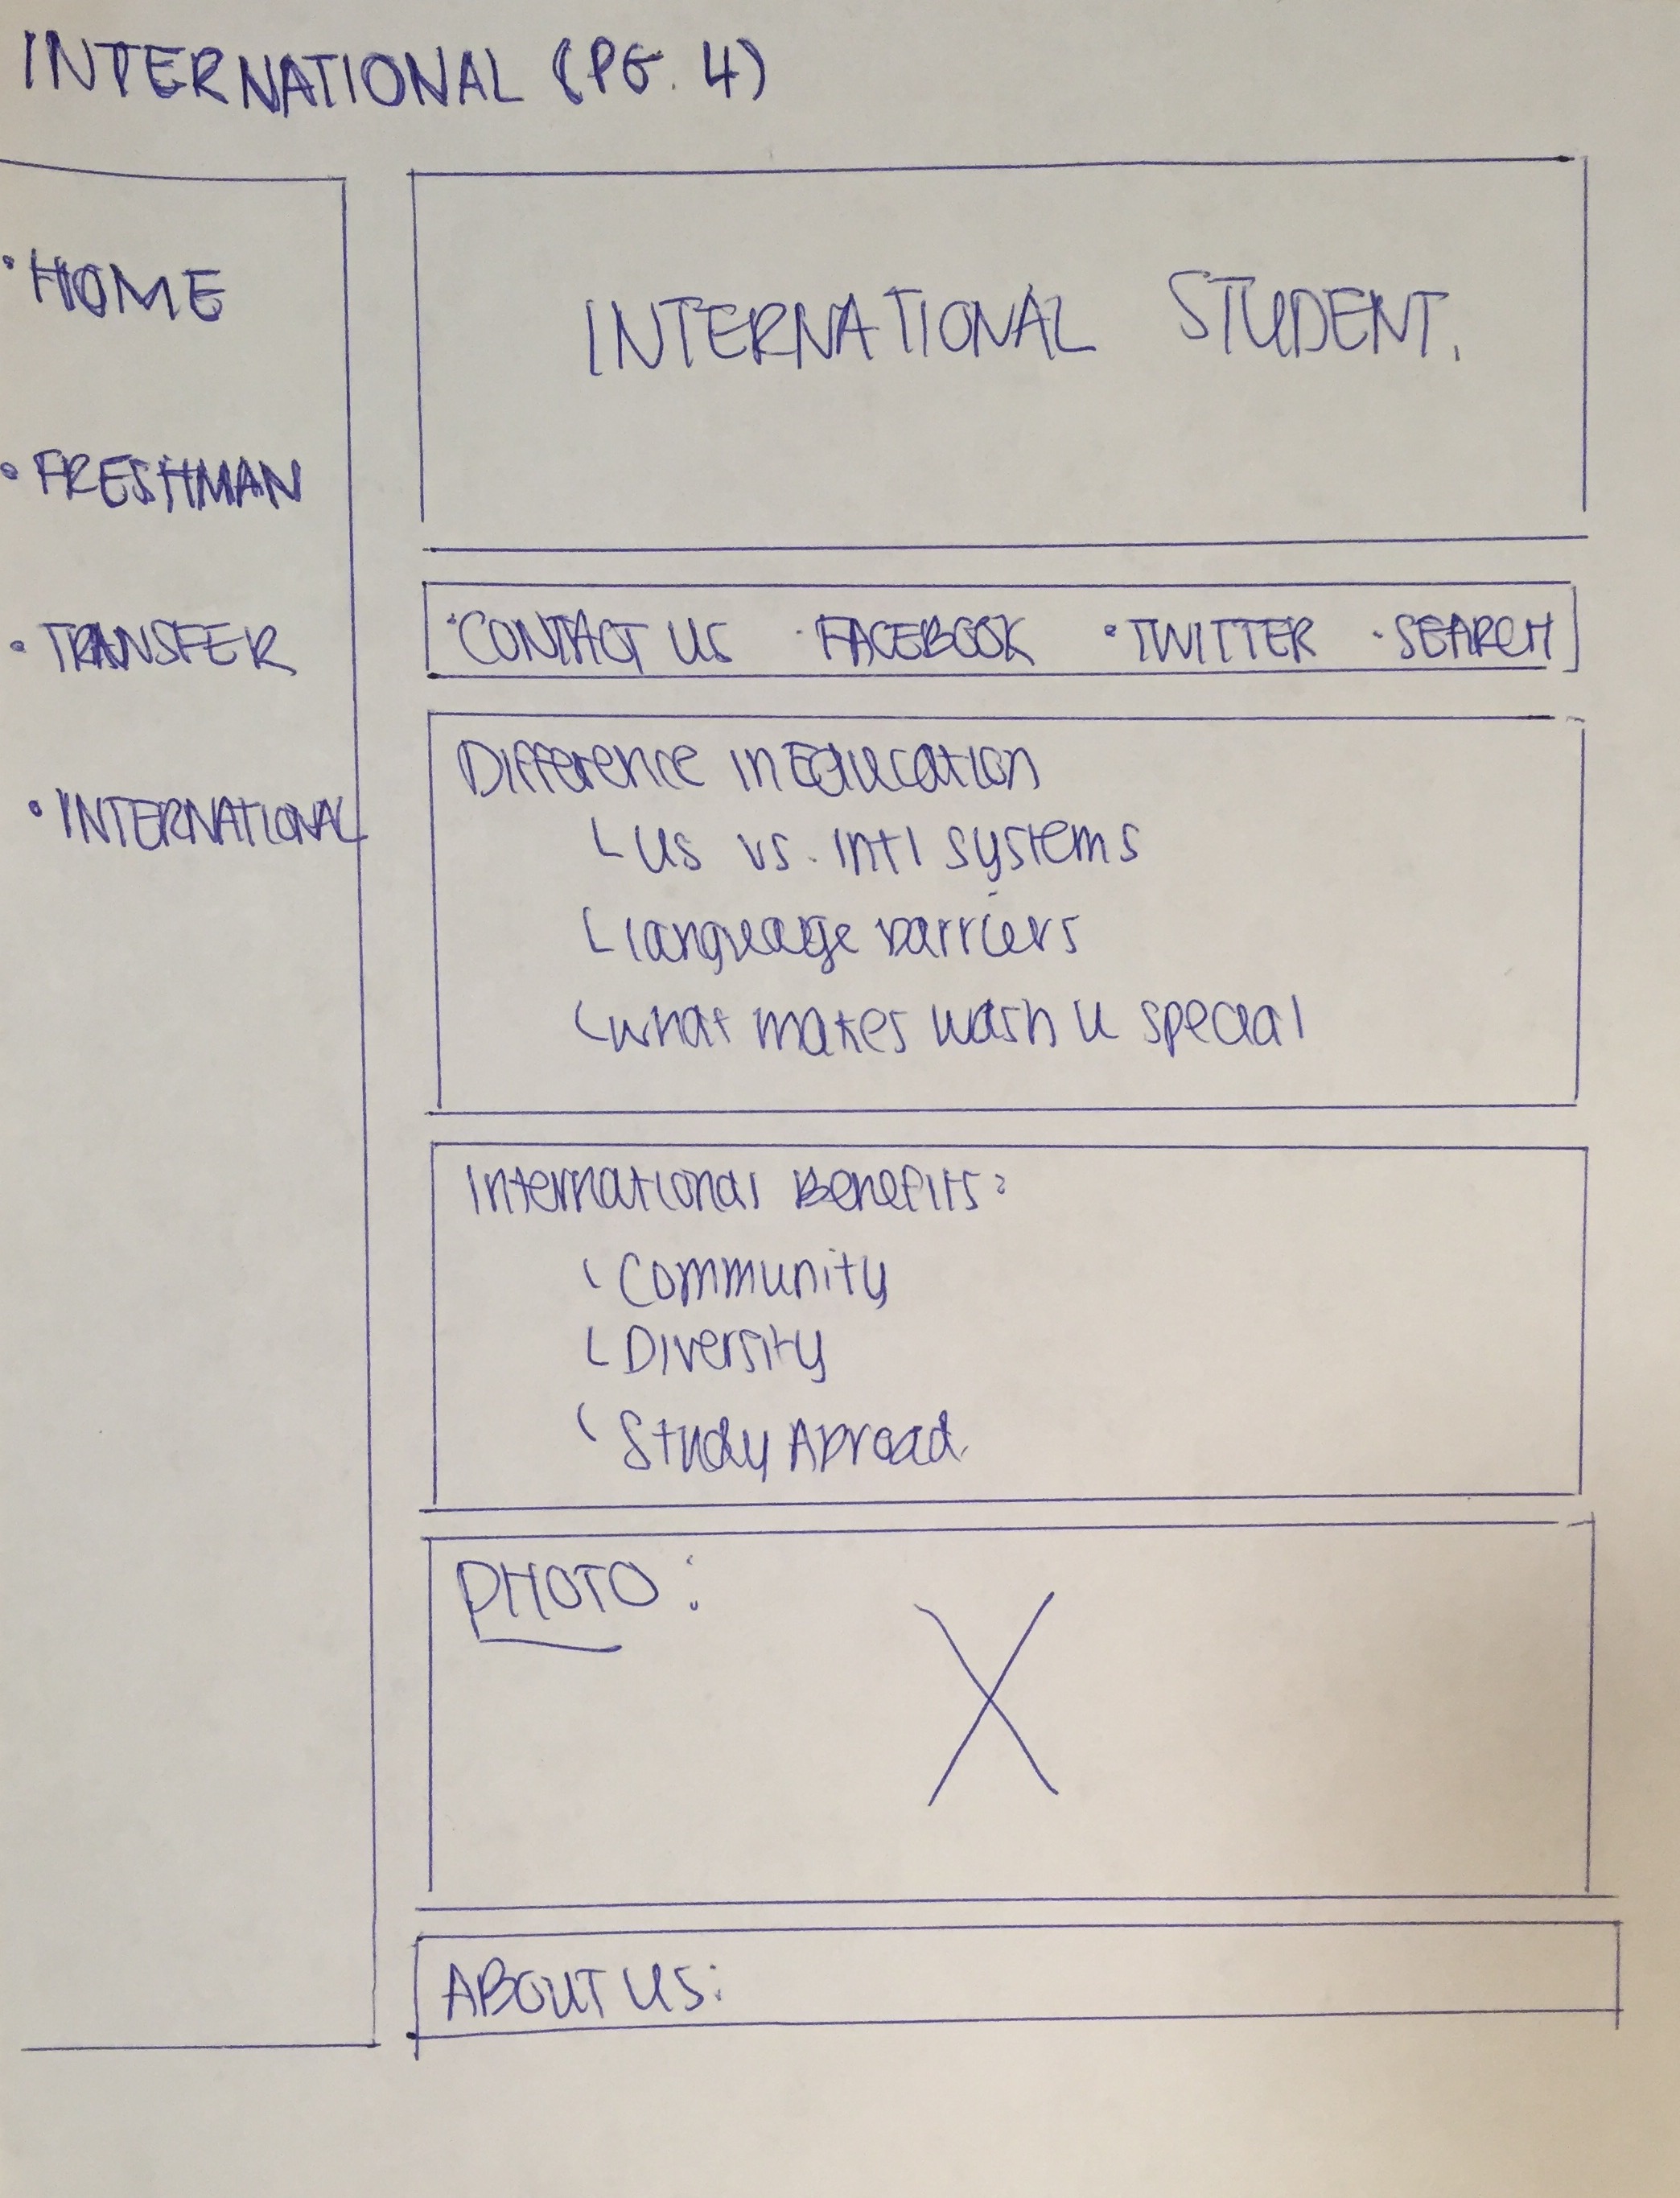 INTERNATIONAL (PG. 4)
• HOME
• FRESHMAN
• TRANSFER
• INTERNATIONAL
INTERNATIONAL STUDENT.
• CONTACT US • FACEBOOK • TWITTER • SEARCH
Difference in Education
└ US vs. Intl systems
└ language barriers
└ what makes wash U special
International Benefits:
└ Community
└ Diversity
└ Study Abroad.
PHOTO:
ABOUT US: